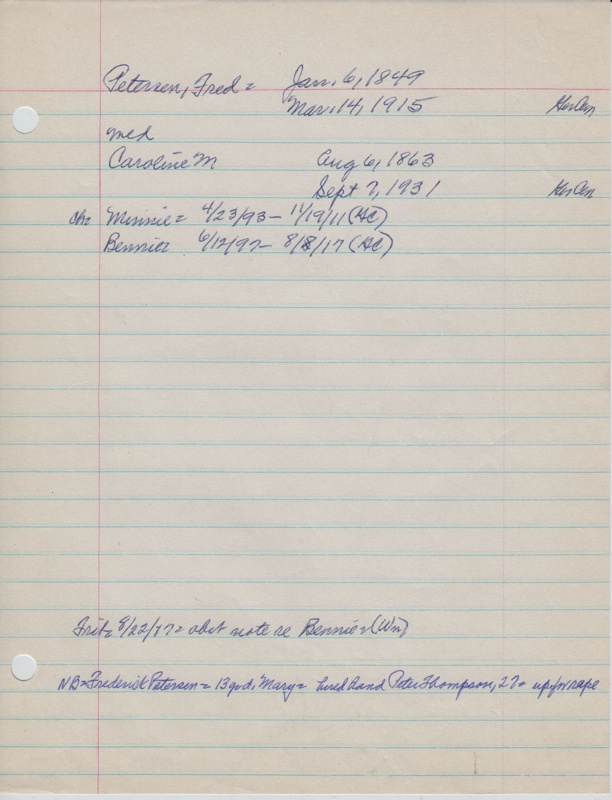 Petersen, Fred = Jan. 6, 1849
Mar. 14, 1915 GerCem
med
Caroline M Aug 6, 1863
Sept 7, 1931 GerCem
ch= Minnie = 4/23/93 - 11/19/11 (HC)
Bennie = 6/12/97 - 8/8/17 (HC)
Fritz 8/22/17 = obit note re Bennie (Wn)
NB = Frederick Petersen = 13 yr d, Mary = hired hand Peter Thompson, 27 = rape